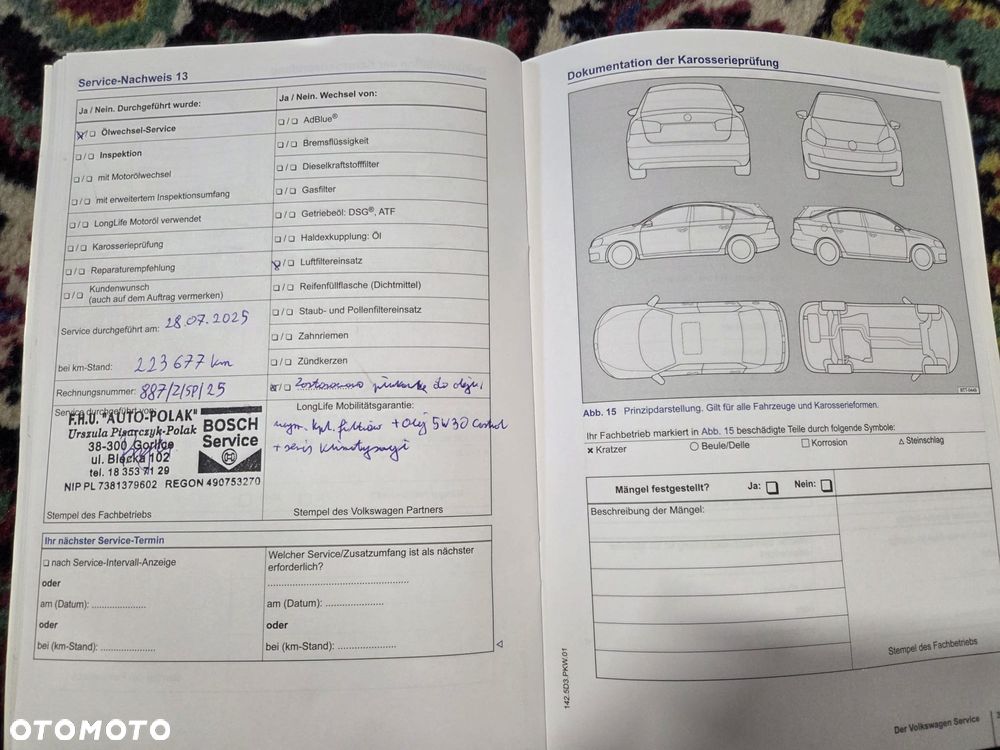 Service-Nachweis 13
Ja / Nein. Durchgeführt wurde:
☒/☐ Ölwechsel-Service
☐/☐ Inspektion
☐/☐ mit Motorölwechsel
☐/☐ mit erweitertem Inspektionsumfang
☐/☐ LongLife Motoröl verwendet
☐/☐ Karosserieprüfung
☐/☐ Reparaturempfehlung
☐/☐ Kundenwunsch
(auch auf dem Auftrag vermerken)
Service durchgeführt am: 28.07.2025
bei km-Stand: 223 677 km
Rechnungsnummer: 887/Z/SP/25
Service durchgeführt von:
F.H.U. "AUTO-POLAK"
Urszula Pisarczyk-Polak
38-300 Gorlice
ul. Blacka 102
tel. 18 353 71 29
NIP PL 7381379602 REGON 490753270
BOSCH
Service
Stempel des Fachbetriebs
Ja / Nein. Wechsel von:
☐/☐ AdBlue®
☐/☐ Bremsflüssigkeit
☐/☐ Dieselkraftstofffilter
☐/☐ Gasfilter
☐/☐ Getriebeöl: DSG®, ATF
☐/☐ Haldexkupplung: Öl
☒/☐ Luftfiltereinsatz
☐/☐ Reifenfüllflasche (Dichtmittel)
☐/☐ Staub- und Pollenfiltereinsatz
☐/☐ Zahnriemen
☐/☐ Zündkerzen
☒/☐ Zastosowano płukankę do oleju,
LongLife Mobilitätsgarantie:
wym. kpl. filtrów + Olej 5W30 Castrol
+ serwis klimatyzacji
Stempel des Volkswagen Partners
Ihr nächster Service-Termin
☐ nach Service-Intervall-Anzeige
oder
am (Datum): ......................
oder
bei (km-Stand): ......................
Welcher Service/Zusatzumfang ist als nächster
erforderlich?
......................................................
am (Datum): ......................
oder
bei (km-Stand): ......................
Dokumentation der Karosserieprüfung
B7T-0449
Abb. 15 Prinzipdarstellung. Gilt für alle Fahrzeuge und Karosserieformen.
Ihr Fachbetrieb markiert in Abb. 15 beschädigte Teile durch folgende Symbole:
× Kratzer ○ Beule/Delle ☐ Korrosion △ Steinschlag
Mängel festgestellt? Ja: ☐ Nein: ☐
Beschreibung der Mängel:
Stempel des Fachbetriebs
142.5D3.PKW.01
Der Volkswagen Service
OTOMOTO